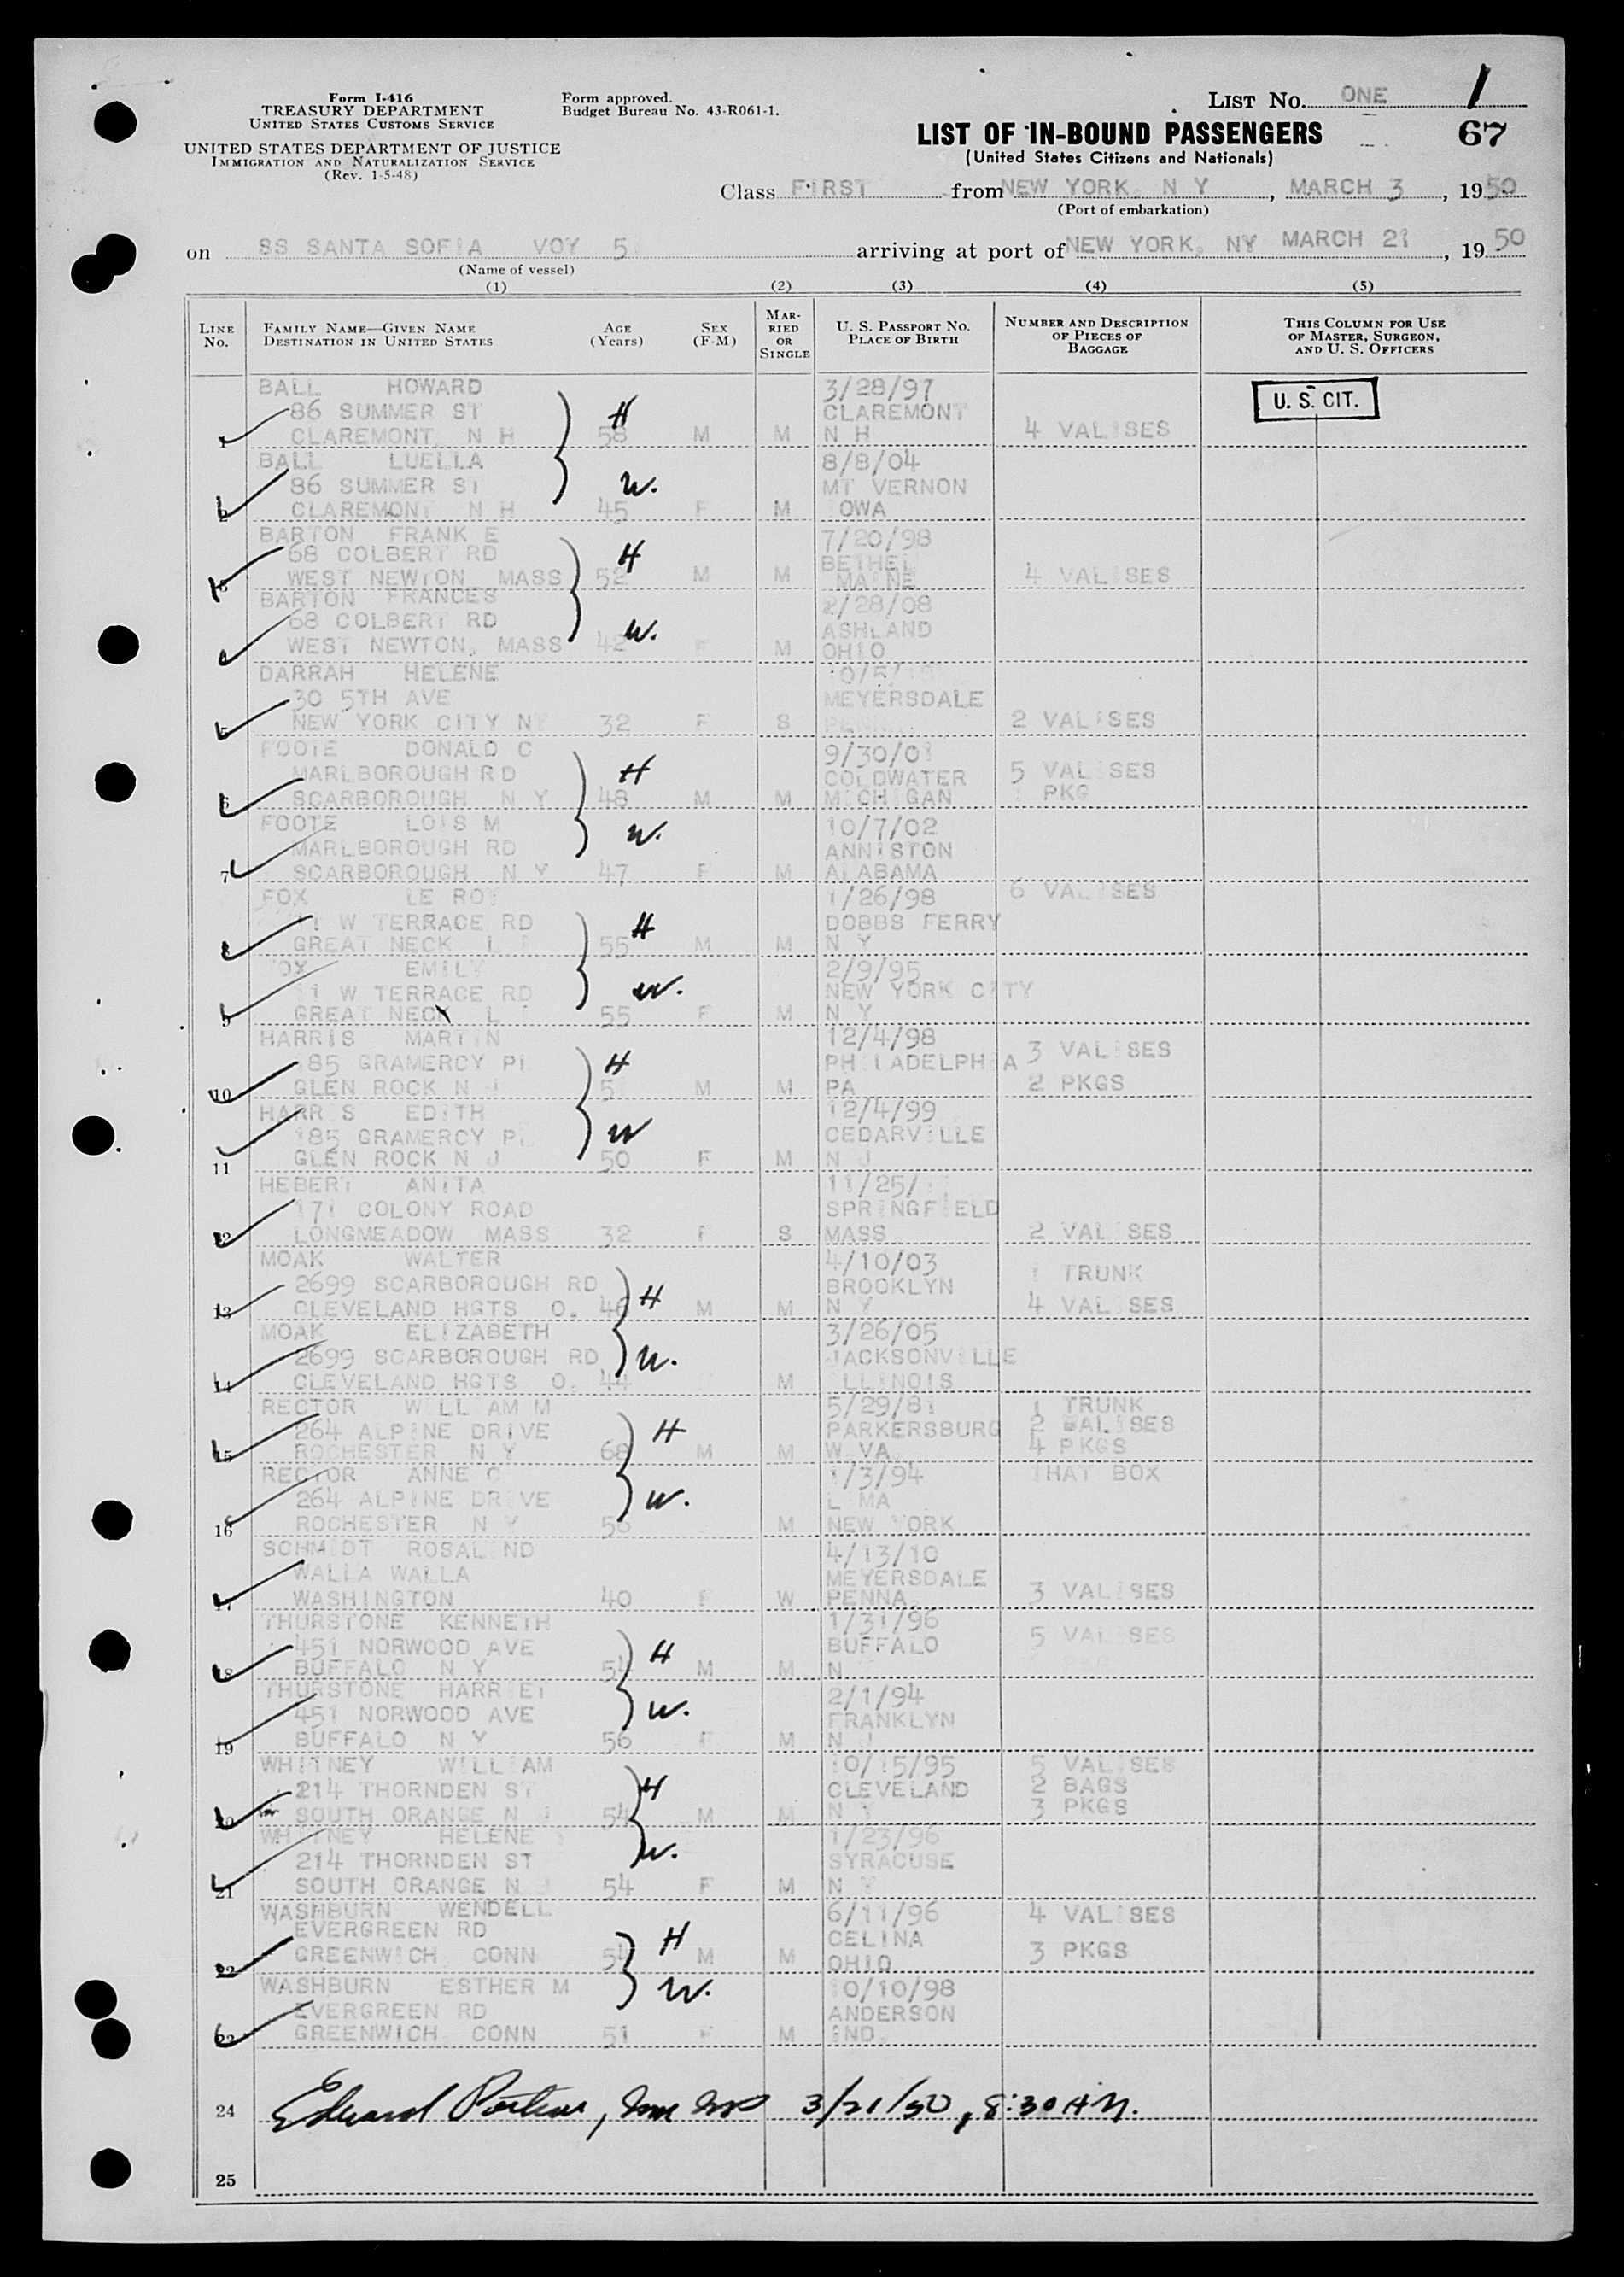 Form I-416
TREASURY DEPARTMENT
UNITED STATES CUSTOMS SERVICE
UNITED STATES DEPARTMENT OF JUSTICE
IMMIGRATION AND NATURALIZATION SERVICE
(Rev. 1-5-48)
Form approved.
Budget Bureau No. 43-R061-1.
LIST No. ONE 1
LIST OF IN-BOUND PASSENGERS 67
(United States Citizens and Nationals)
Class FIRST from NEW YORK, N Y, MARCH 3, 1950
(Port of embarkation)
on SS SANTA SOFIA VOY 5 arriving at port of NEW YORK, NY MARCH 21, 1950
(Name of vessel)
(1) (2) (3) (4) (5)
LINE No. FAMILY NAME—GIVEN NAME DESTINATION IN UNITED STATES AGE (Years) SEX (F-M) MARRIED OR SINGLE U. S. PASSPORT No. PLACE OF BIRTH NUMBER AND DESCRIPTION OF PIECES OF BAGGAGE THIS COLUMN FOR USE OF MASTER, SURGEON, AND U. S. OFFICERS
BALL HOWARD 3/28/97 U. S. CIT.
86 SUMMER ST H CLAREMONT
1 CLAREMONT N H 58 M M N H 4 VALISES
BALL LUELLA 8/8/04
86 SUMMER ST W. MT VERNON
2 CLAREMONT N H 45 F M IOWA
BARTON FRANK E 7/20/98
68 COLBERT RD H BETHEL
3 WEST NEWTON MASS 52 M M MAINE 4 VALISES
BARTON FRANCES 2/28/08
68 COLBERT RD W. ASHLAND
4 WEST NEWTON, MASS 42 F M OHIO
DARRAH HELENE 10/5/
30 5TH AVE MEYERSDALE
5 NEW YORK CITY NY 32 F S PENNA 2 VALISES
FOOTE DONALD C 9/30/01
MARLBOROUGH RD H COLDWATER 5 VALISES
6 SCARBOROUGH N Y 48 M M MICHIGAN 1 PKG
FOOTE LOIS M 10/7/02
MARLBOROUGH RD W. ANNISTON
7 SCARBOROUGH N Y 47 F M ALABAMA
FOX LE ROY 1/26/98 6 VALISES
11 W TERRACE RD H DOBBS FERRY
8 GREAT NECK L I 55 M M N Y
FOX EMILY 2/9/95
11 W TERRACE RD W. NEW YORK CITY
9 GREAT NECK L I 55 F M N Y
HARRIS MARTIN 12/4/98 3 VALISES
185 GRAMERCY PL H PHILADELPHIA
10 GLEN ROCK N J 5 M M PA 2 PKGS
HARRIS EDITH 12/4/99
185 GRAMERCY PL W CEDARVILLE
11 GLEN ROCK N J 50 F M N J
HEBERT ANITA 11/25/
171 COLONY ROAD SPRINGFIELD
12 LONGMEADOW MASS 32 F S MASS 2 VALISES
MOAK WALTER 4/10/03 1 TRUNK
2699 SCARBOROUGH RD H BROOKLYN
13 CLEVELAND HGTS O. 46 M M N Y 4 VALISES
MOAK ELIZABETH 3/26/05
2699 SCARBOROUGH RD W. JACKSONVILLE
14 CLEVELAND HGTS O. 44 M ILLINOIS
RECTOR WILLIAM M 5/29/81 1 TRUNK
264 ALPINE DRIVE H PARKERSBURG 2 VALISES
15 ROCHESTER N Y 68 M M W VA. 4 PKGS
RECTOR ANNE C 1/3/94 1 HAT BOX
264 ALPINE DRIVE W. LIMA
16 ROCHESTER N Y 56 M NEW YORK
SCHMIDT ROSALIND 4/13/10
WALLA WALLA MEYERSDALE
17 WASHINGTON 40 F W PENNA. 3 VALISES
THURSTONE KENNETH 1/31/96 5 VALISES
451 NORWOOD AVE H BUFFALO
18 BUFFALO N Y 54 M M N
THURSTONE HARRIET 2/1/94
451 NORWOOD AVE W. FRANKLYN
19 BUFFALO N Y 56 F M N J
WHITNEY WILLIAM 10/15/95 5 VALISES
214 THORNDEN ST H CLEVELAND 2 BAGS
20 SOUTH ORANGE N J 54 M M N Y 3 PKGS
WHITNEY HELENE 1/23/96
214 THORNDEN ST W. SYRACUSE
21 SOUTH ORANGE N J 54 F M N Y
WASHBURN WENDELL 6/11/96 4 VALISES
EVERGREEN RD H CELINA
22 GREENWICH CONN 54 M M OHIO 3 PKGS
WASHBURN ESTHER M W. 10/10/98
EVERGREEN RD ANDERSON
23 GREENWICH CONN 51 F M IND.
24 Edward 3/21/50, 8:30 AM.
25